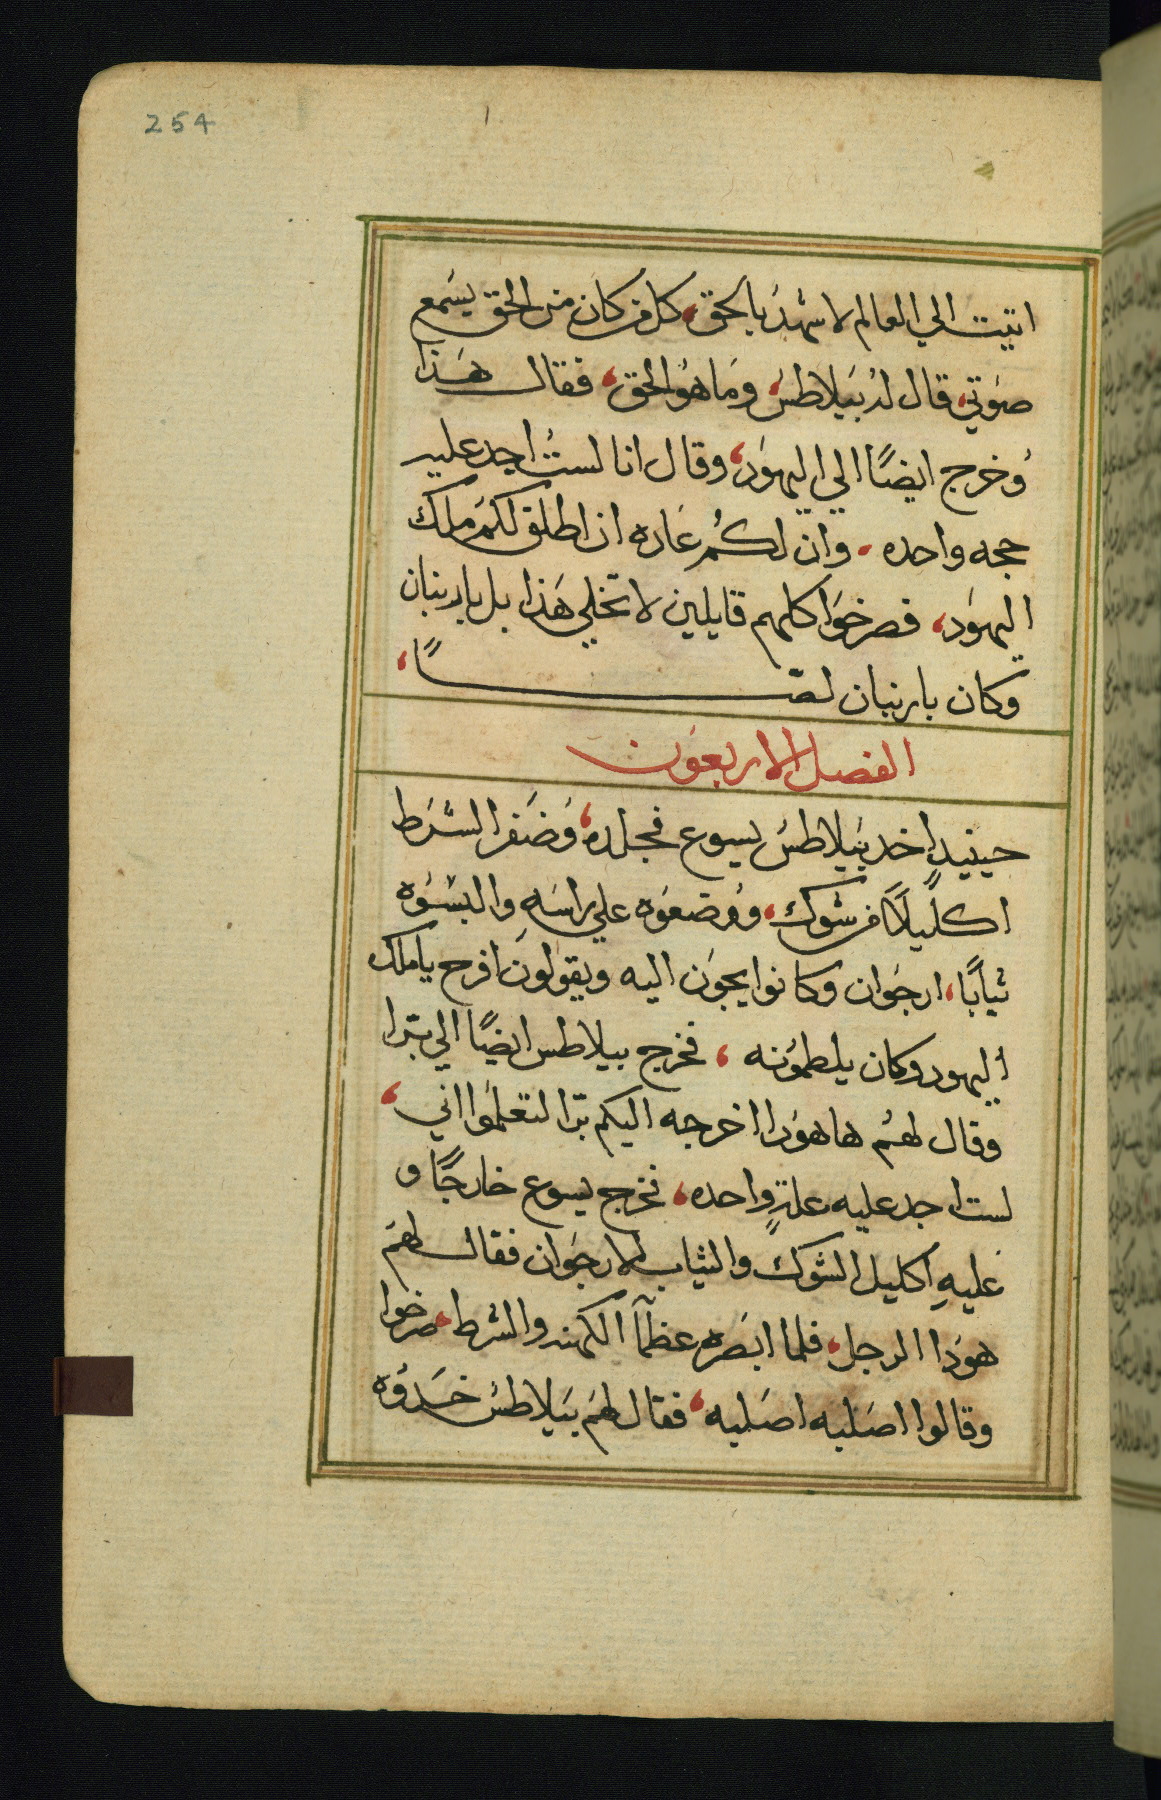 254
اتيت الي العالم لاشهد بالحق، كل من كان من الحق يسمع
صوتي، قال له بيلاطس، وما هو الحق، فقال هذا
وخرج ايضًا الي اليهود، وقال انا لست اجد عليه
حجه واحده. وان لكم عاده ان اطلق لكم ملك
اليهود، فصرخوا كلهم قايلين لا تخلي هذا بل باربنان
وكان باربنان لصًا،
الفصل الاربعون
حينيدٍ اخد بيلاطس يسوع فجلده، وضفر الشرط
اكليلًا من شوك، ووضعوه علي راسه والبسوه
ثيابًا، ارجوان وكانوا يجون اليه ويقولون افرح ياملك
اليهود وكان يلطمونه، فخرج بيلاطس ايضًا الي برا
وقال لهم ها هودا اخرجه اليكم برا لتعلموا اني،
لست اجد عليه علةٍ واحده، فخرج يسوع خارجًا و
عليهِ اكليل الشوك والثياب الارجوان فقال لهم
هودا الرجل، فلما ابصره عظمآ الكهنه والشرط، صرخوا
وقالوا اصلبه اصلبه، فقال لهم بيلاطس خدوه